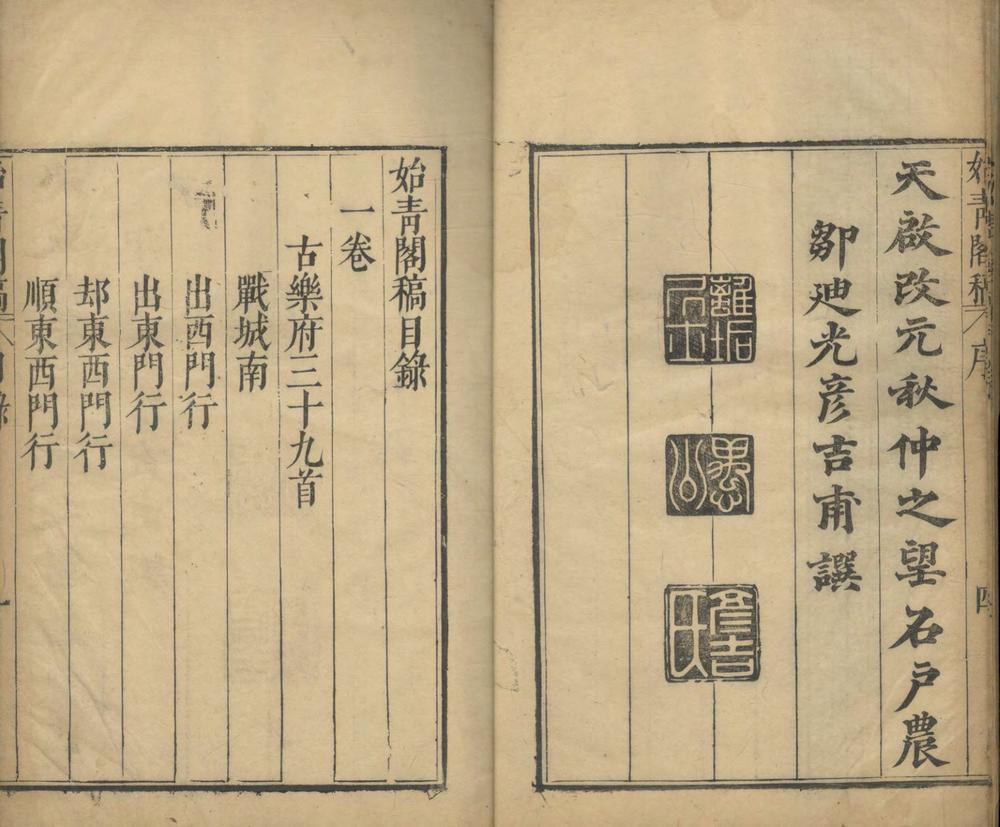 始青閣稿 序 四
天啟改元秋仲之望石戶農
鄒迪光彥吉甫譔
離垢居士
愚公
彥吉氏
始青閣稿目錄
一卷
古樂府三十九首
戰城南
出西門行
出東門行
却東西門行
順東西門行
始青閣稿 目錄 一